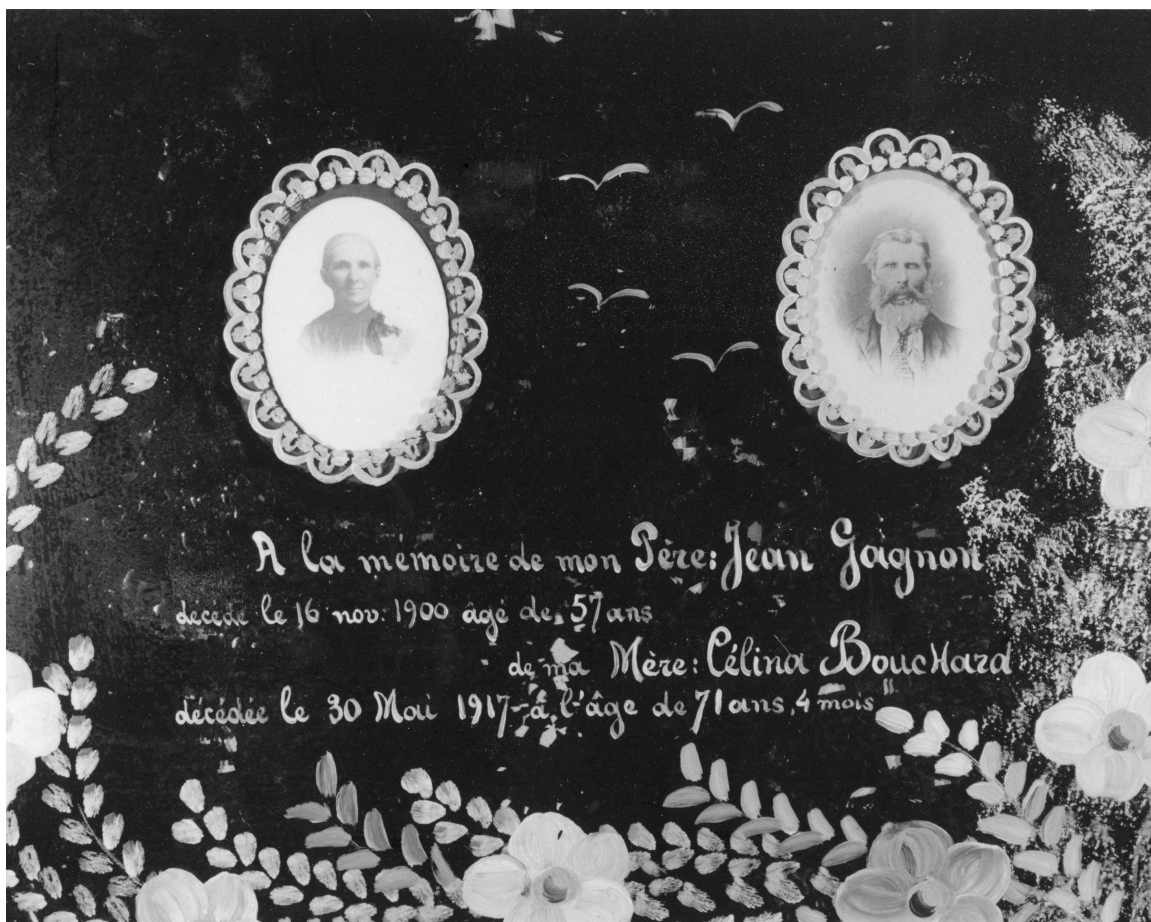 A la mémoire de mon Père: Jean Gagnon
décédé le 16 nov. 1900 âgé de 57 ans
de ma Mère: Célina Bouchard
décédée le 30 Mai 1917 à l'âge de 71 ans, 4 mois